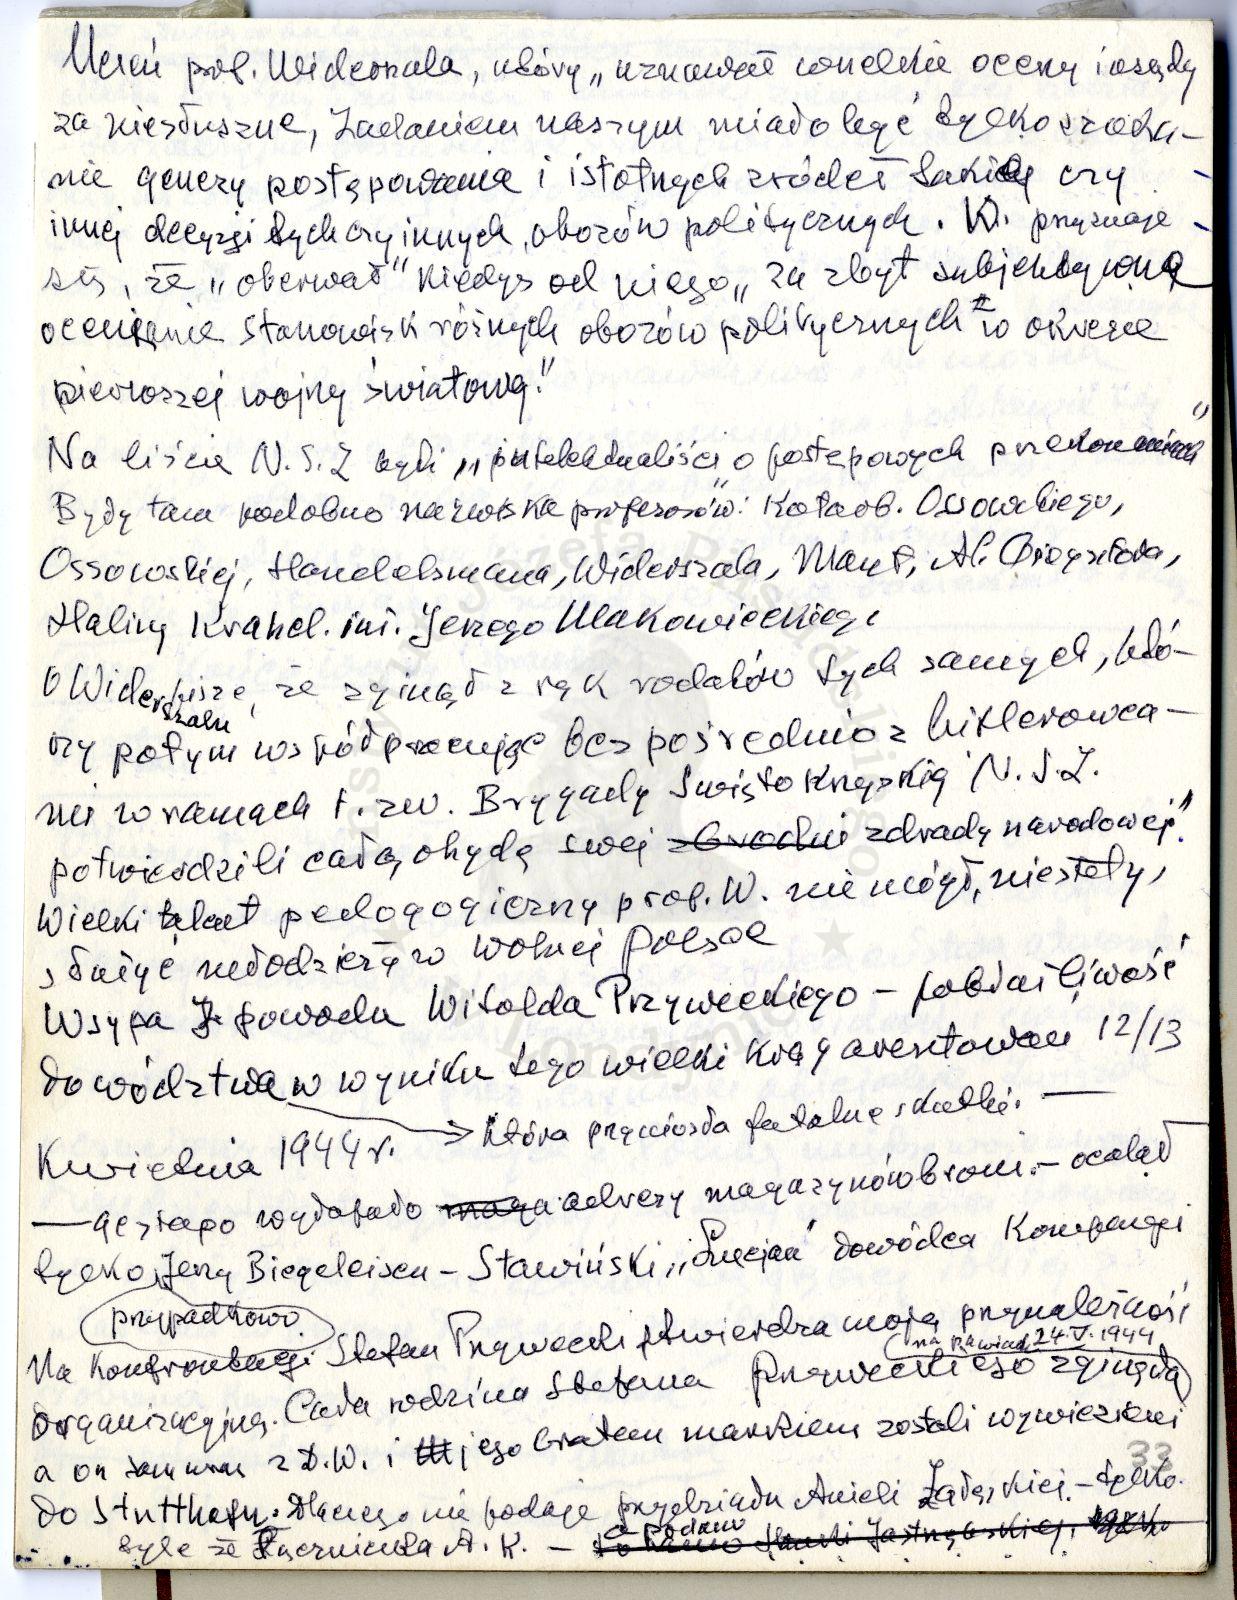 Uczeń prof. Widerszala, który „uznawał wszelkie oceny i osądy
za niesłuszne, zadaniem naszym miało być tylko szuka-
nie genezy postępowania i istotnych źródeł takiej czy
innej decyzji tych czy innych obozów politycznych. K. przyznaje
się, że „oberwał" kiedyś od niego „za zbyt subjektywną
ocenianie stanowisk różnych obozów politycznych w okresie
pierwszej wojny światową."
Na liście N.S.Z byli „intelektualiści o postępowych przekonaniach"
Były tam podobno nazwiska profesorów: Kotarb. Ossowskiego,
Ossowskiej, Handelsmana, Widerszala, Maryt, Al.
Haliny Krahel. inż. Jerzego Makowieckiego
O Widerszalu pisze, że zginął z rąk rodaków tych samych, któ-
rzy potym współpracując bezpośrednio z hitlerowca-
mi w ramach t.zw. Brygady Świętokrzyskiej N.S.Z.
potwierdzili całą ohydę swej zbrodni zdrady narodowej."
Wielki talent pedagogiczny prof. W. nie mógł, niestety,
służyć młodzieży w wolnej Polsce
Wsypa z powodu Witolda Przyweckiego – pobłażliwość
dowództwa w wyniku tego wielki krąg aresztowań 12/13
która przyniosła fatalne skutki. —
Kwietnia 1944 r.
— gestapo wydobyło adresy magazynów broni. – ocalał
tylko Jerzy Biegeleisen – Stawiński „Lucjan" dowódca Kompanji
przypadkowo.
Na konfrontacji Stefan Przywecki stwierdza moją przynależność
na Pawiaku 24.V.1944
organizacyjną. Cała rodzina Stefana Przyweckiego zginęła
a on sam wraz z D.W. i jego bratem zostali wywiezieni
33
do Stutthofu. Dlaczego nie podaje przydziału Anieli – tylko
tyle że Łączniczka A.K. –
Instytut Józefa Piłsudskiego
w Londynie